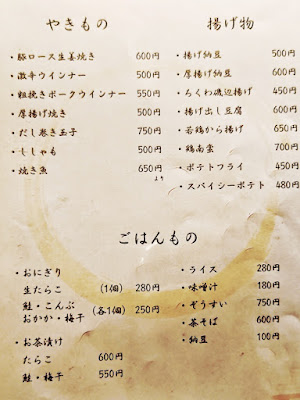 やきもの
・豚ロース生姜焼き 600円
・激辛ウインナー 500円
・粗挽きポークウインナー 550円
・厚揚げ焼き 500円
・だし巻き玉子 750円
・ししゃも 500円
・焼き魚 650円より
揚げ物
・揚げ納豆 500円
・厚揚げ納豆 600円
・ちくわ磯辺揚げ 450円
・揚げ出し豆腐 600円
・若鶏から揚げ 650円
・鶏南蛮 700円
・ポテトフライ 450円
・スパイシーポテト 480円
ごはんもの
・おにぎり
生たらこ (1個) 280円
鮭・こんぶ
おかか・梅干 (各1個) 250円
・お茶漬け
たらこ 600円
鮭・梅干 550円
・ライス 280円
・味噌汁 180円
・ぞうすい 750円
・茶そば 600円
・納豆 100円